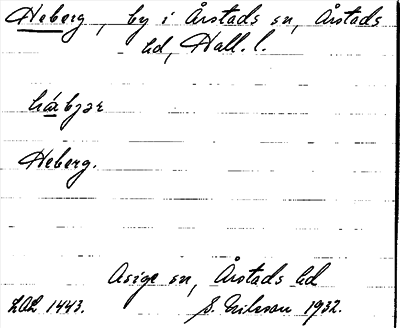 Heberg, by i Årstads sn, Årstads
hd, Hall. l.
Heberg.
Asige sn, Årstads hd
1443. S. Erikson 1932.